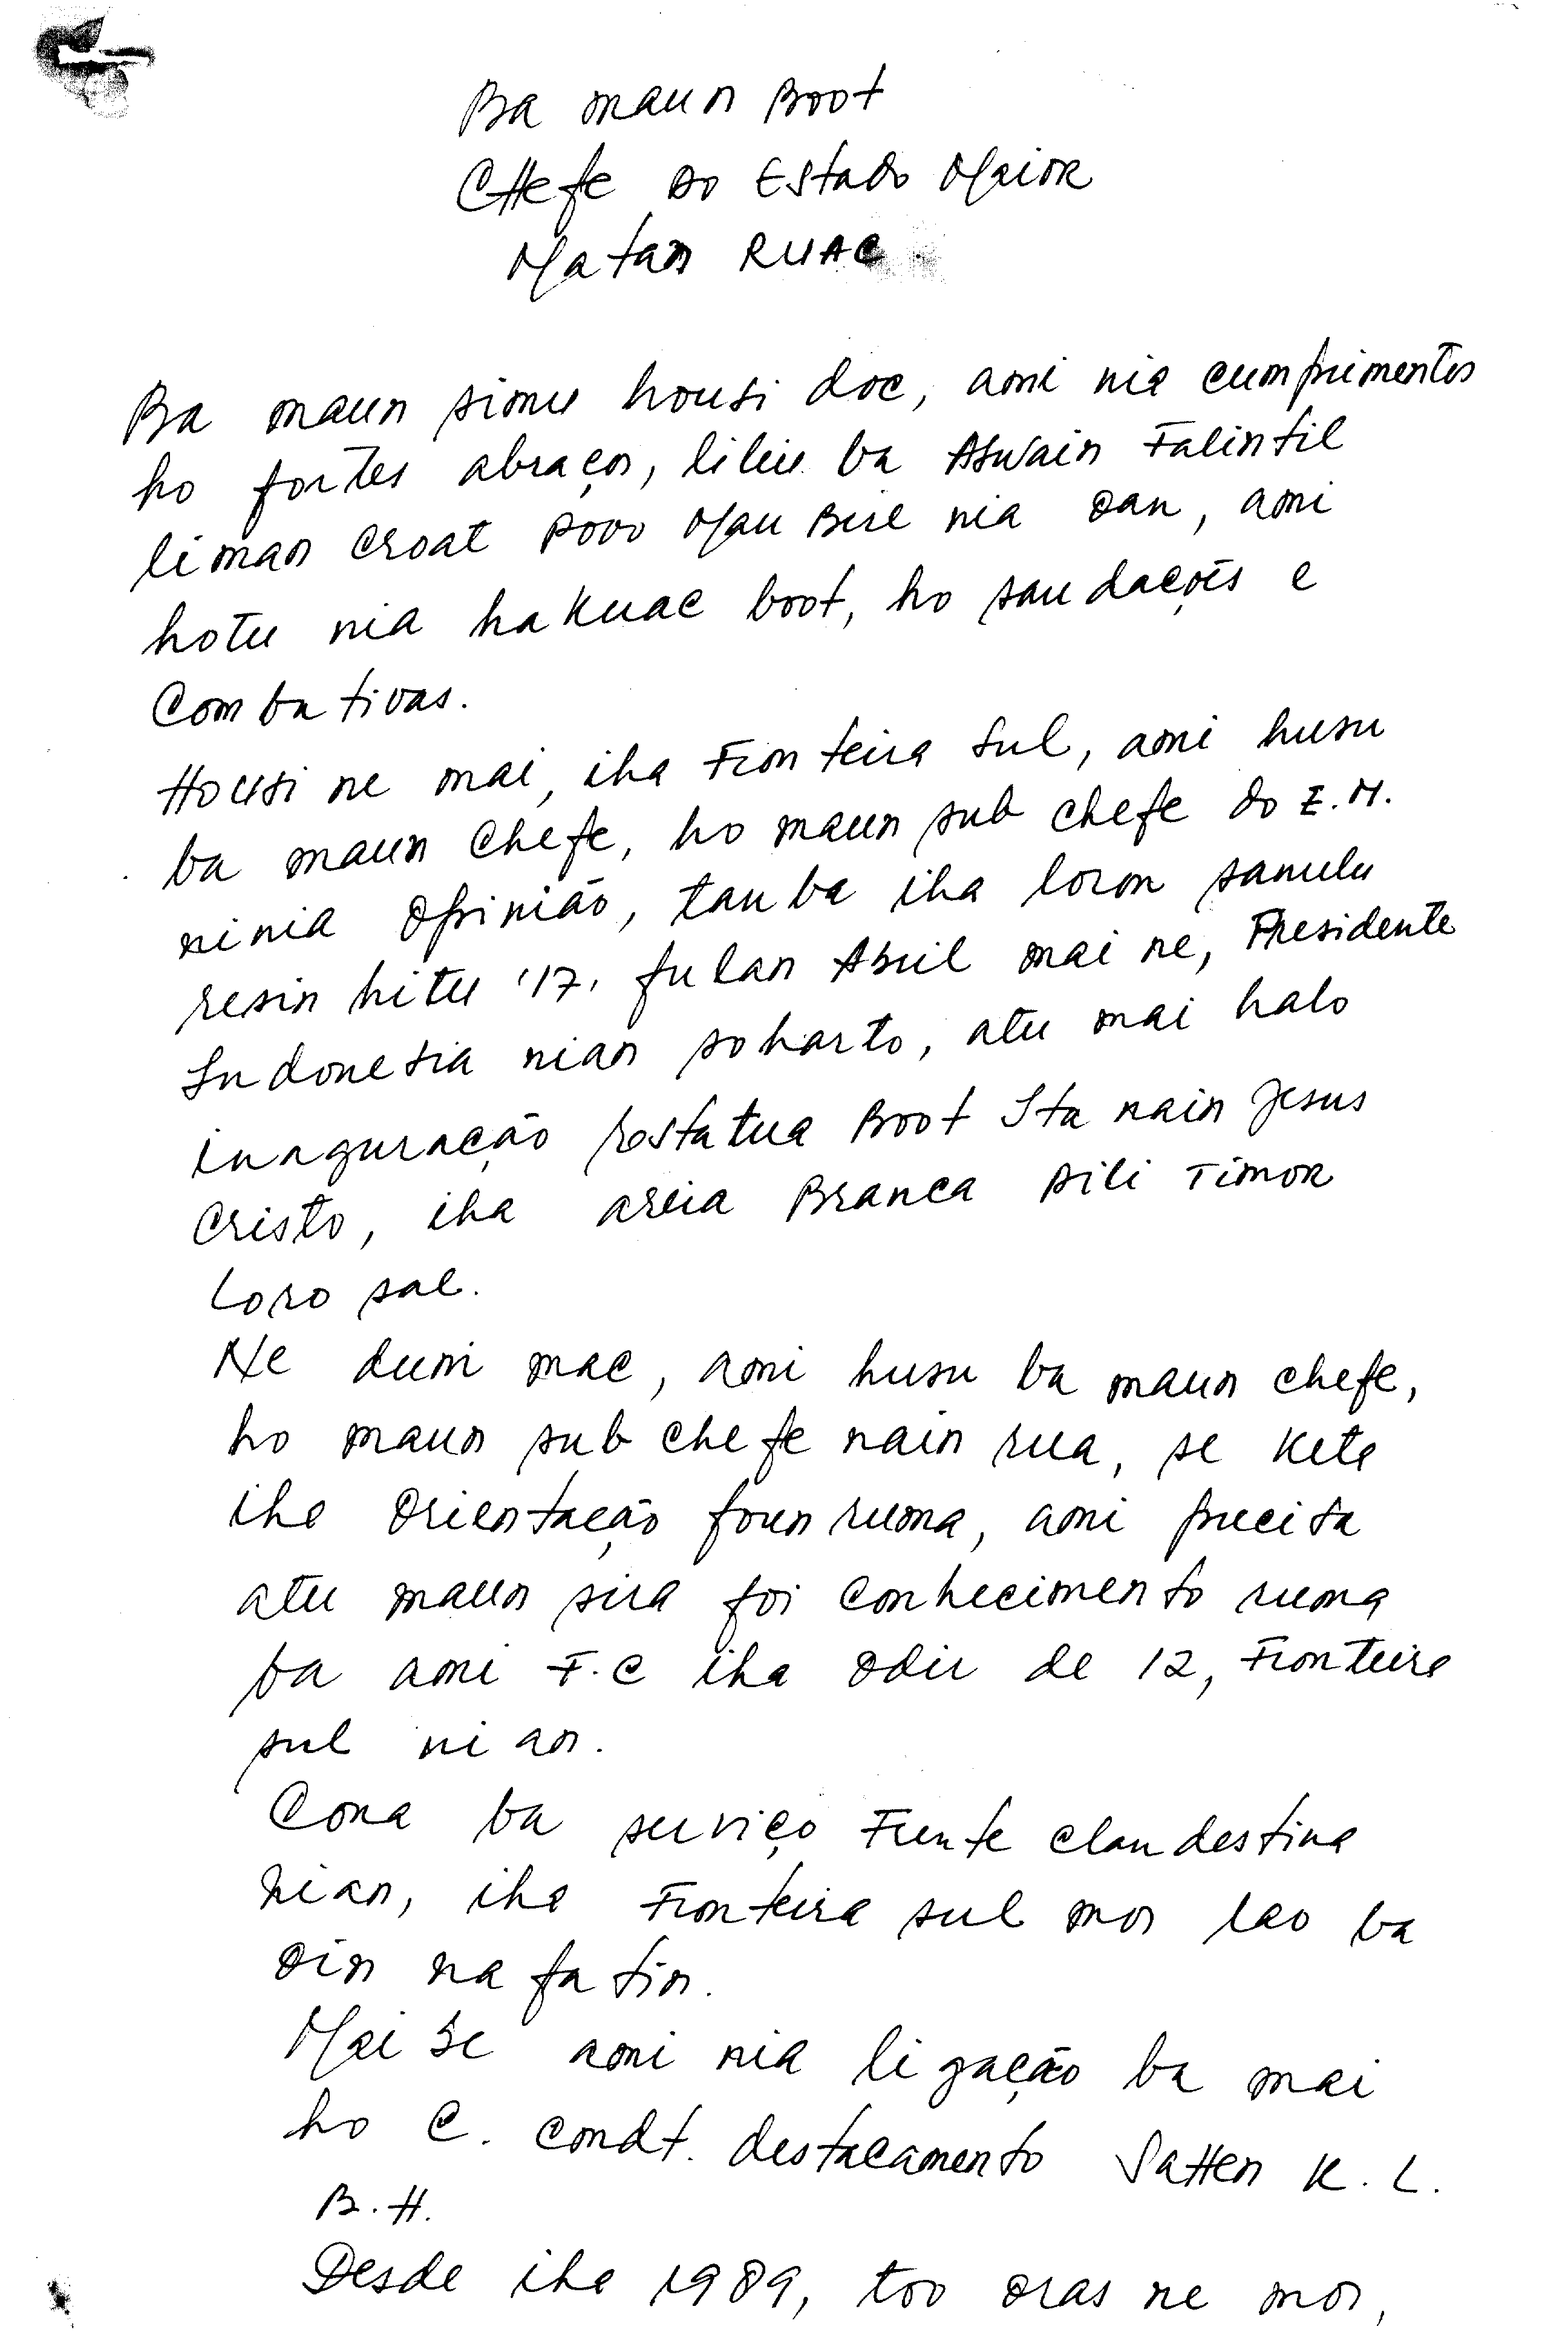 Ba maun Boot
CHefe Do Estado Maior
Matan RUAC
Ba maun simu housi doc, ami nia cumprimentos
ho fortes abraços, liliu ba Aswain Falintil
liman croat Povo Mau Bere nia oan, ami
hotu nia hakuac boot, ho saudações e
Combativas.
Housi ne mai, iha Fronteira Sul, ami husu
ba maun Chefe, ho maun sub chefe do E.M.
ninia Opinião, tauba iha loron sanulu
resin hitu '17, fulan Abril mai ne, Presidente
Indonesia nian soharto, atu mai halo
inaguração estatua Boot Ita nain Jesus
Cristo, iha areia Branca Dili Timor
Loro sae.
Ne duni mac, ami husu ba maun chefe,
ho maun sub chefe nain rua, se kete
iha Orientação foun ruma, ami precisa
atu maun sira foi conhecimento ruma
ba ami F.C iha Odir de 12, Fronteira
sul nian.
Cona ba serviço Frente clandestina
nian, iha Fronteira sul mos lao ba
oin nafatin.
Mai se ami nia ligação ba mai
ho C. Condt. destacamento Satten K. L.
B.H.
Desde iha 1989, too oras ne mos,